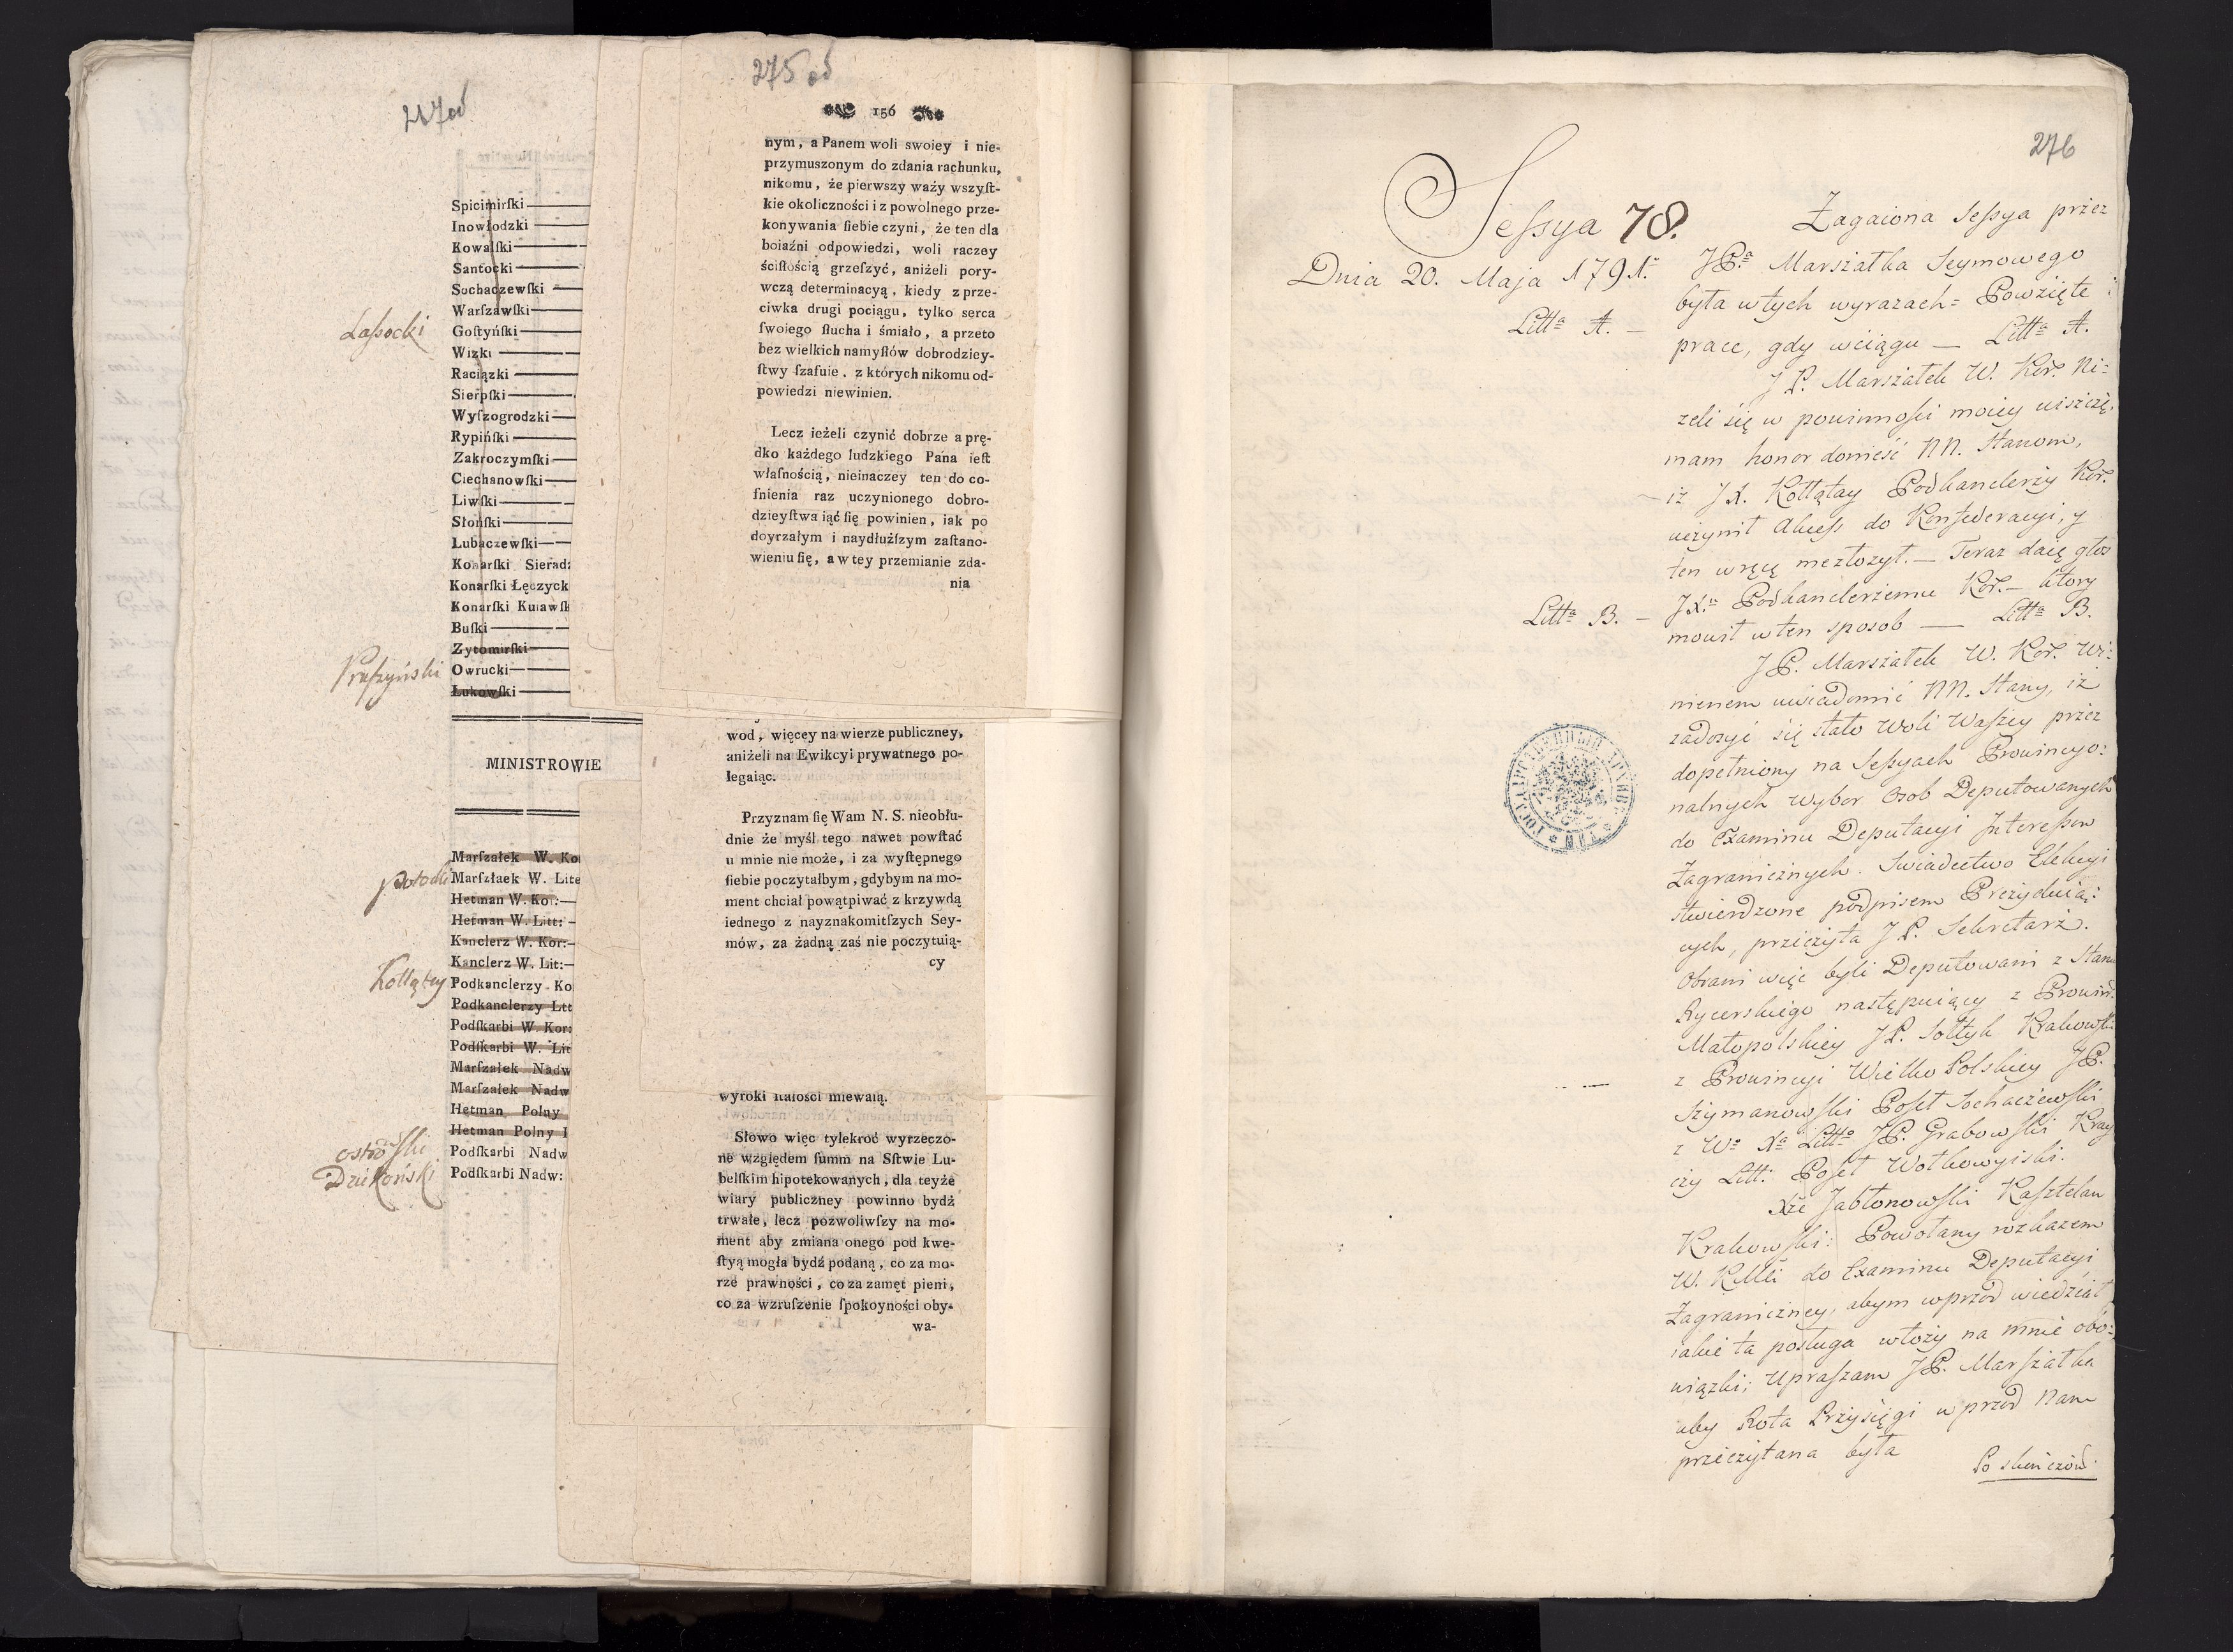 217od
Spicimirſki
Inowłodzki
Kowalſki
Santocki
Sochaczewſki
Warſzawſki
Laſsocki Goſtyńſki
Wizki
Raciązki
Sierpſki
Wyſzogrodzki
Rypińſki
Zakroczymſki
Ciechanowſki
Liwſki
Słońſki
Lubaczewſki
Konarſki Sieradz
Konarſki Łęczyck
Konarſki Kuiawſk
Buſki
Zytomirſki
Pruſzyński Owrucki
Łukowſki
MINISTROWIE
Marſzałek W. Ko
Potocki Marſzłaek W. Lite
Hetman W. Kor:
Hetman W. Litt:
Kanclerz W. Kor:
Kanclerz W. Lit:
Kołłątay Podkanclerzy Ko
Podkanclerzy Litt
Podſkarbi W. Kor:
Podſkarbi W. Lit
Marſzałek Nadw
Marſzałek Nadw
Hetman Polny
Hetman Polny I
Ostroſski Podſkarbi Nadw
Dziekoński Podſkarbi Nadw:
275 od
156
nym, a Panem woli swoiey i nie-
przymuszonym do zdania rachunku,
nikomu, że pierwszy waży wszyſt-
kie okoliczności i z powolnego prze-
konywania ſiebie czyni, że ten dla
boiaźni odpowiedzi, woli raczey
ściſłością grzeſzyć, aniżeli pory-
wczą determinacyą, kiedy z prze-
ciwka drugi pociągu, tylko serca
ſwoiego ſłucha i śmiało, a przeto
bez wielkich namyſłów dobrodziey-
ſtwy ſzafuie, z których nikomu od-
powiedzi niewinien.
Lecz ieżeli czynić dobrze a prę-
dko każdego ludzkiego Pana ieſt
właſnością, nieinaczey ten do co-
fnienia raz uczynionego dobro-
dzieyſtwa iąć ſię powinien, iak po
doyrzałym i naydłużſzym zaſtano-
wieniu ſię, a w tey przemianie zda-
nia
wod, więcey na wierze publiczney,
aniżeli na Ewikcyi prywatnego po-
legaiąc.
Przyznam ſię Wam N. S. nieobłu-
dnie że myśl tego nawet powſtać
u mnie nie może, i za wyſtępnego
ſiebie poczytałbym, gdybym na mo-
ment chciał powątpiwać z krzywdą
iednego z nayznakomitſzych Sey-
mów, za żadną zaś nie poczytuią-
cy
wyroki ſtałości miewaią.
Słowo więc tylekroć wyrzeczo-
ne względem ſumm na Sſtwie Lu-
belſkim hipotekowanych, dla teyże
wiary publiczney powinno bydź
trwałe, lecz pozwoliwſzy na mo-
ment aby zmiana onego pod kwe-
ſtyą mogła bydź podaną, co za mo-
rze prawności, co za zamęt pieni,
co za wzruſzenie ſpokoyności oby-
wa-
276
Seſsya 78.
Dnia 20. Maja 1791.
Litt.a A.
Litt.a B.
Zagaiona Seſsya przez
JP.a Marszałka Seymowego
była w tych wyrazach = Powzięte
prace, gdy wciągu — Litt.a A.
J P. Marszałek W. Kor. Ni=
zeli się w powinności moiey uiszczę,
mam honor donieść NN. Stanom,
iż J X. Kołłątay Podkanclerzy Kor.
uczynił akceſs do Konfederacyi, y
ten w ręcę me złożył. — Teraz daię głos
JX.u Podkanclerzemu Kor. — który
mowił w ten sposob — Litt.a B.
JP. Marszałek W. Kor. Wi=
nienem uwiadomić NN. Stany, iż
zadosyć się stało Woli Waſzey przez
dopełniony na Seſsyach Prowincyo:
nalnych Wybor Osob Deputowanych
do Examinu Deputacyi Intereſsow
Zagranicznych. Swiadectwo Elekcyi
stwierdzone podpisem Prezyduią:
cych, przeczyta J P. Sekretarz.
Obrani więc byli Deputowani z Stanu
Rycerskiego następuiący z Prowin.
Małopolskiey J P. Sołtyk Krakowſki
z Prowincyi Wielko Polskiey JP.
Szymanowſki Poſeł Sochaczewſki
z W.o X.a Litt.o JP. Grabowſki Kray
czy Litt: Poſeł Wołkowyiski.
Xże Jabłonowſki Kaſztelan
Krakowſki: Powołany rozkazem
W. K Mci do Examinu Deputacyi
Zagraniczney, abym wprzod wiedział,
iakie ta posługa włoży na mnie obo=
wiązki; upraſzam JP. Marſzałka
aby Rota Przysięgi wprzod nam
przeczytana była
Po skończon